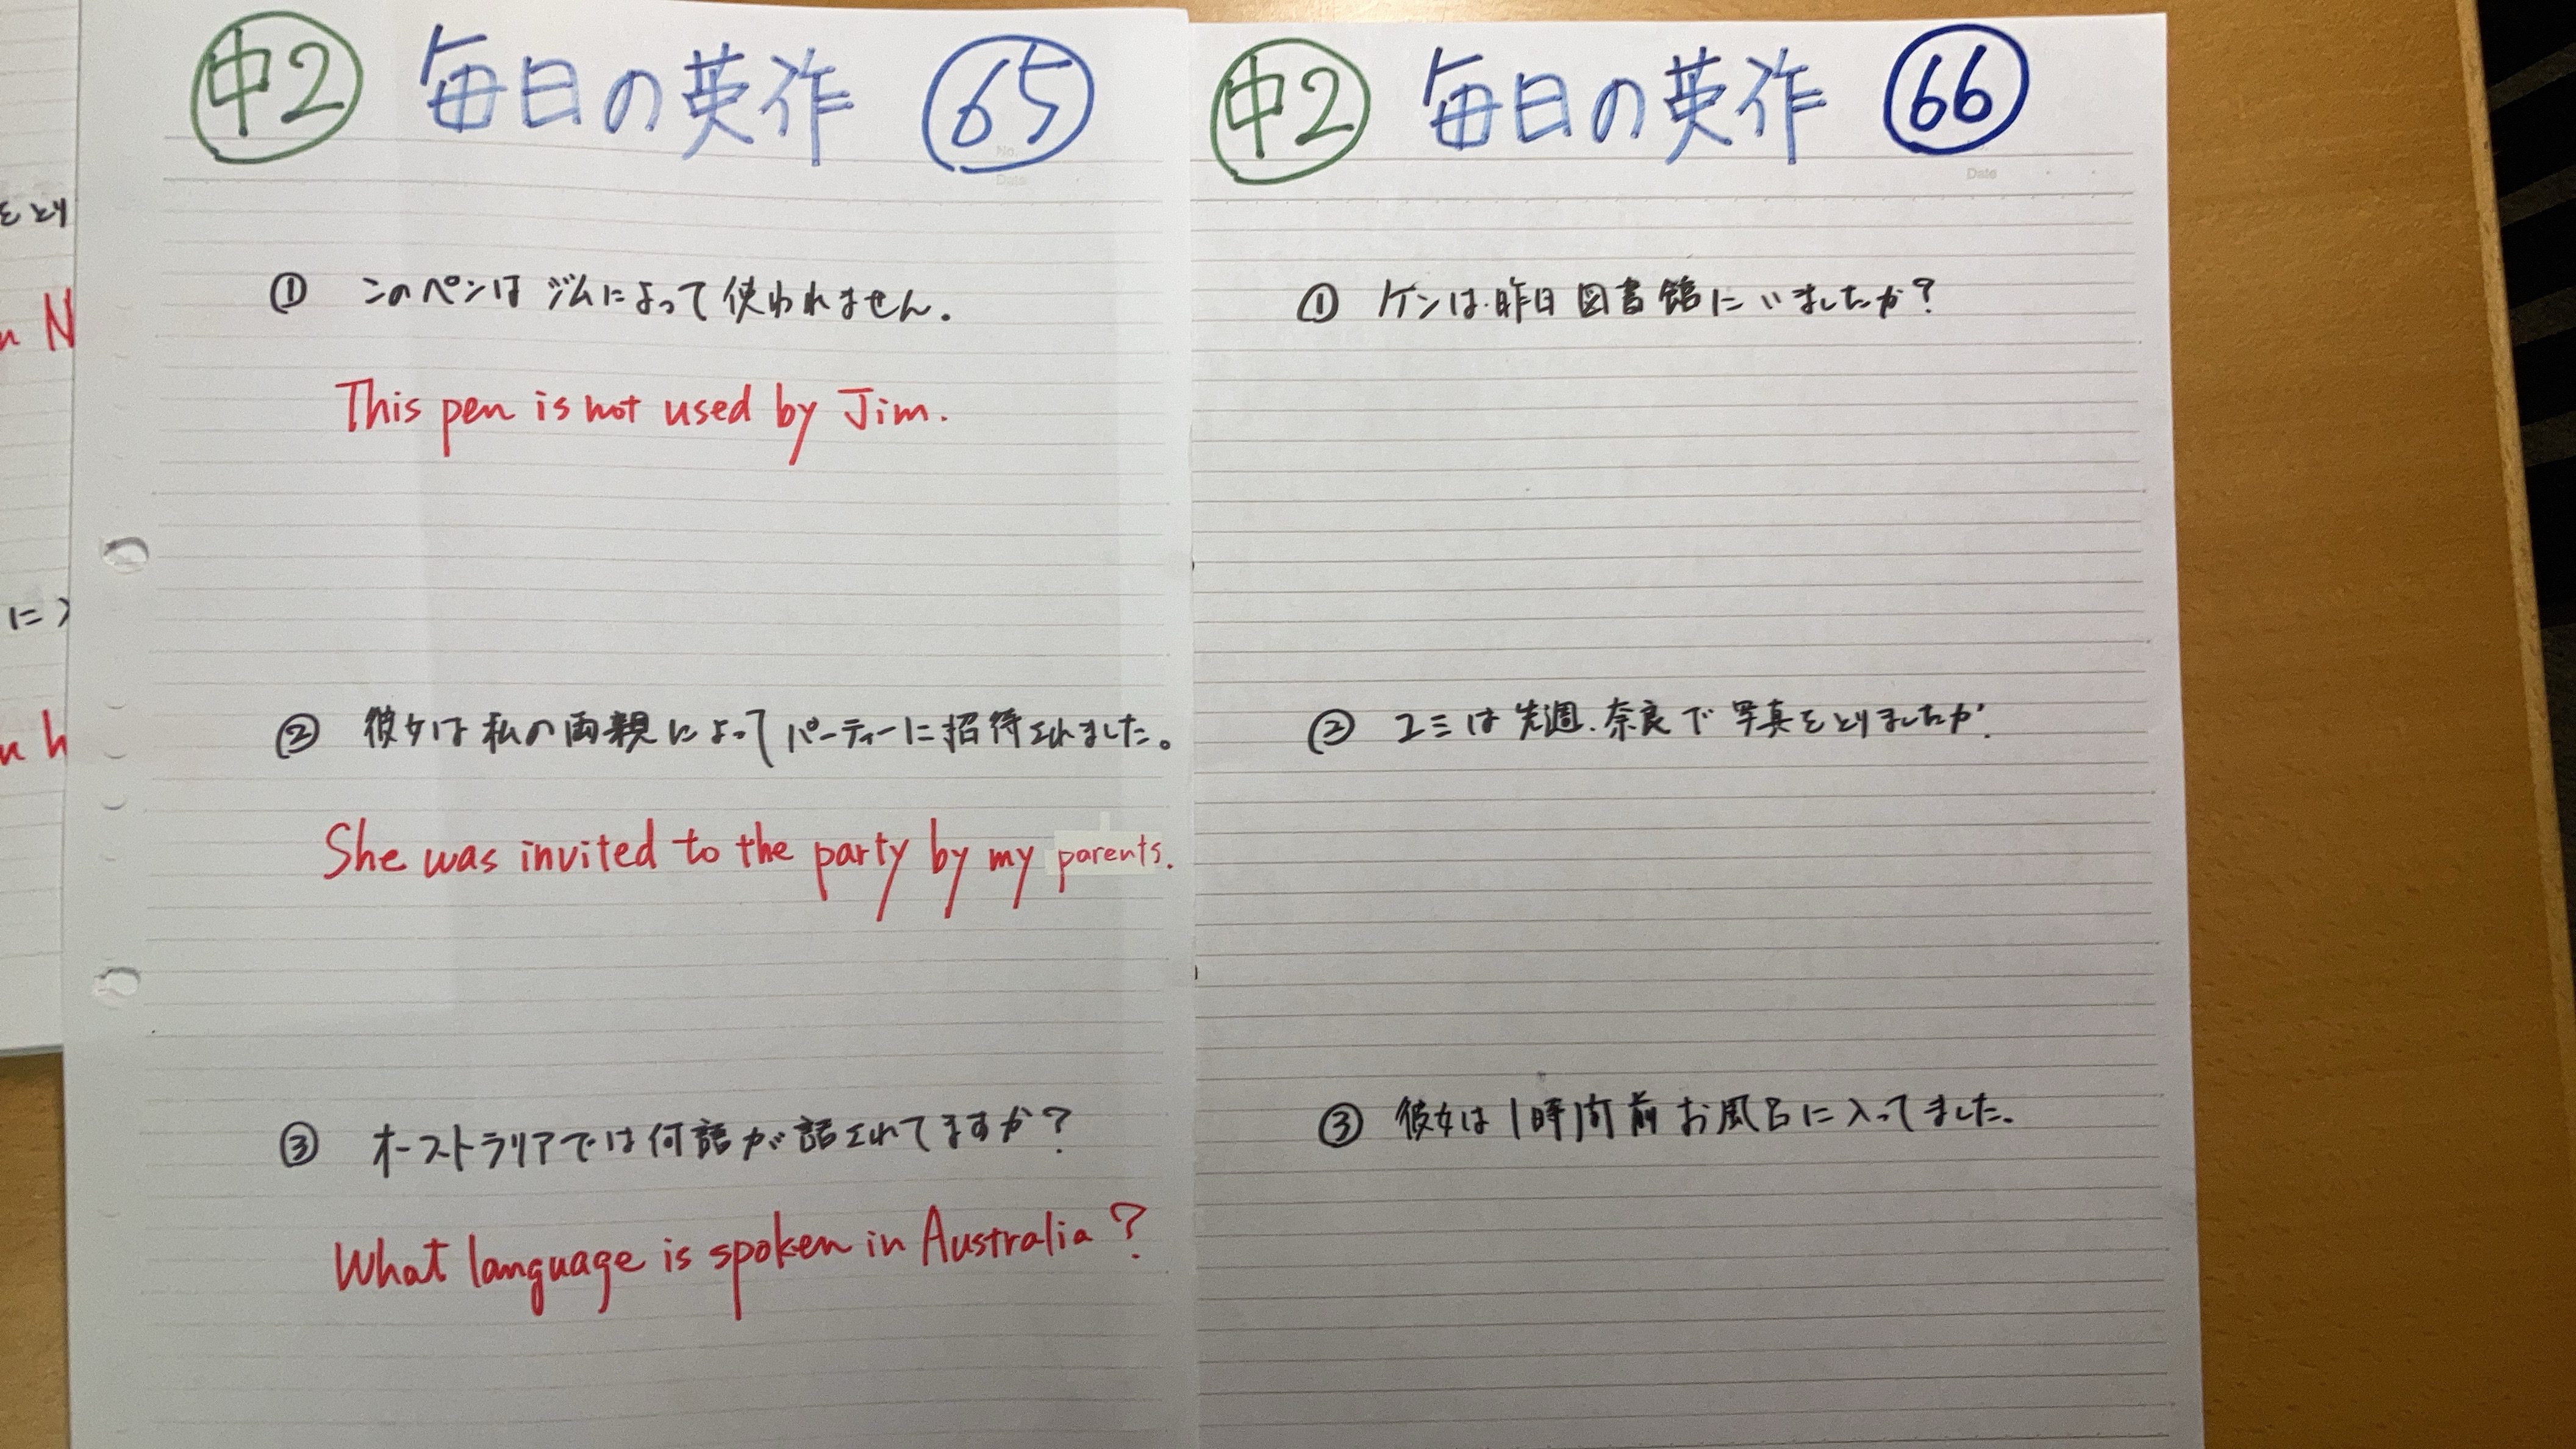 をとり
n N
に入
n h
中2 毎日の英作 65
No.
Date
① このペンはジムによって使われません.
This pen is not used by Jim.
② 彼女は私の両親によってパーティーに招待されました。
She was invited to the party by my parents.
③ オーストラリアでは何語が話されてますか?
What language is spoken in Australia?
中2 毎日の英作 66
Date
① ケンは昨日図書館にいましたか?
② ユミは先週.奈良で写真をとりましたか.
③ 彼女は1時間前お風呂に入ってました.